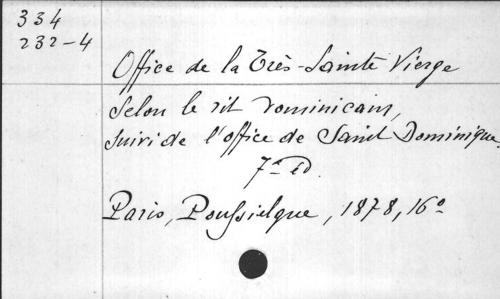 334
232-4
Office de la Très-Sainte Vierge
Selon le rit Dominicain,
suivi de l'office de Saint Dominique.
7e Ed.
Paris, Poussielgue, 1878, 16º